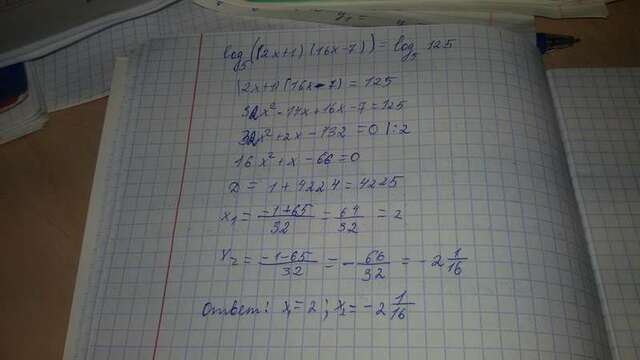 log₅((2x+1)(16x-7)) = log₅ 125
(2x+1)(16x-7) = 125
32x²-14x+16x-7=125
32x²+2x-132=0 |:2
16x²+x-66=0
D = 1+4224=4225
x₁ = (-1+65)/32 = 64/32 = 2
x₂ = (-1-65)/32 = -66/32 = -2 1/16
Ответ: x₁=2; x₂=-2 1/16